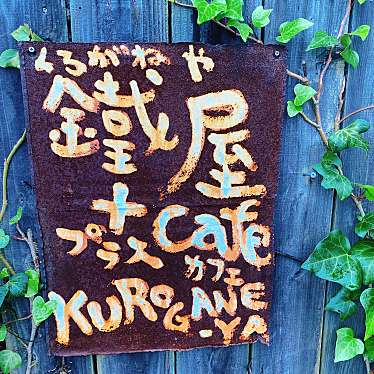 くろがねや
鐵屋
十
プラス
Cafe
カフェ
KUROGANE
-YA